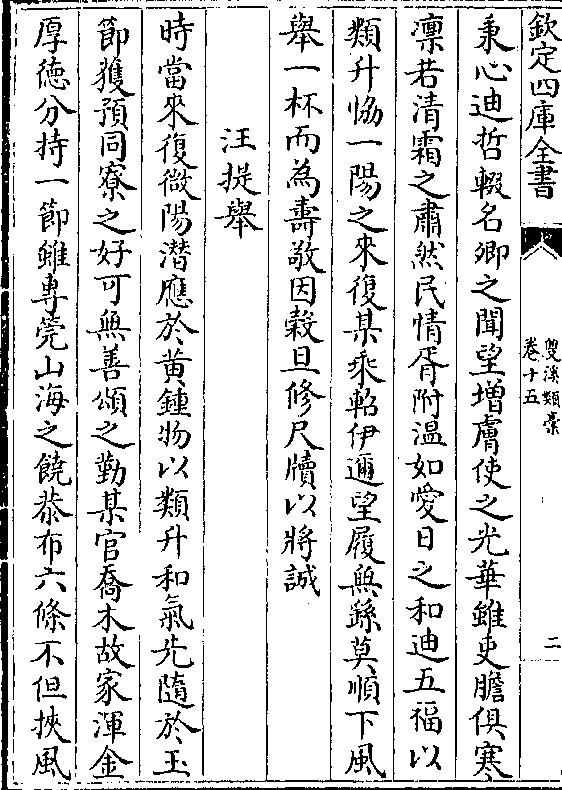 欽定四庫全書
雙溪類稾
卷十五
二
秉心迪哲輟名卿之聞望増膚使之光華雖吏膽俱寒
凛若清霜之肅然民情胥附温如愛日之和迪五福以
類升恊一陽之來復某乘軺伊邇望履無繇莫順下風
舉一杯而為壽敬因穀旦修尺牘以將誠
汪提舉
時當來復微陽潜應於黄鍾物以類升和氣先隨於玉
節獲預同寮之好可無善頌之勤某官喬木故家渾金
厚徳分持一節雖専筦山海之饒恭布六條不但挾風